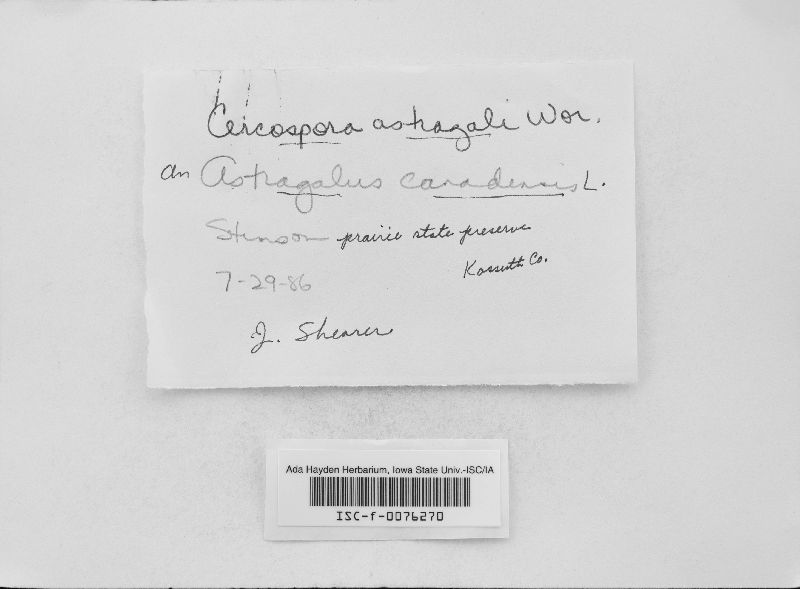 Cercospora astragali Wor.
on Astragalus canadensis L.
Stinson prairie state preserve
Kossuth Co.
7-29-86
J. Shearer
Ada Hayden Herbarium, Iowa State Univ.-ISC/IA
ISC-f-0076270